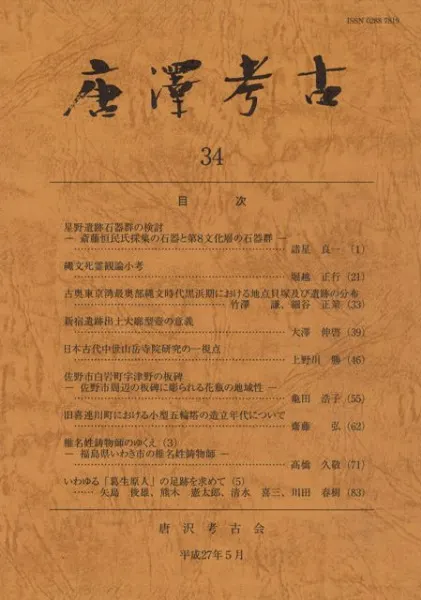 ISSN 0288-7819
唐澤考古
34
目 次
星野遺跡石器群の検討
― 斎藤恒民氏採集の石器と第8文化層の石器群 ―
諸星 良一 (1)
縄文死霊観論小考
堀越 正行 (21)
古奥東京湾最奥部縄文時代黒浜期における地点貝塚及び遺跡の分布
竹澤 謙、細谷 正策 (33)
新宿遺跡出土大總型壺の意義
大澤 伸啓 (39)
日本古代中世山岳寺院研究の一視点
上野川 勝 (46)
佐野市白岩町宇津野の板碑
― 佐野市周辺の板碑に彫られる花瓶の地域性 ―
亀田 浩子 (55)
旧喜連川町における小型五輪塔の造立年代について
齋藤 弘 (62)
椎名姓鋳物師のゆくえ (3)
― 福島県いわき市の椎名姓鋳物師 ―
高橋 久敬 (71)
いわゆる「葛生原人」の足跡を求めて (5)
…… 矢島 俊雄、熊木 憲太郎、清水 喜三、川田 春樹 (83)
唐沢考古会
平成27年5月